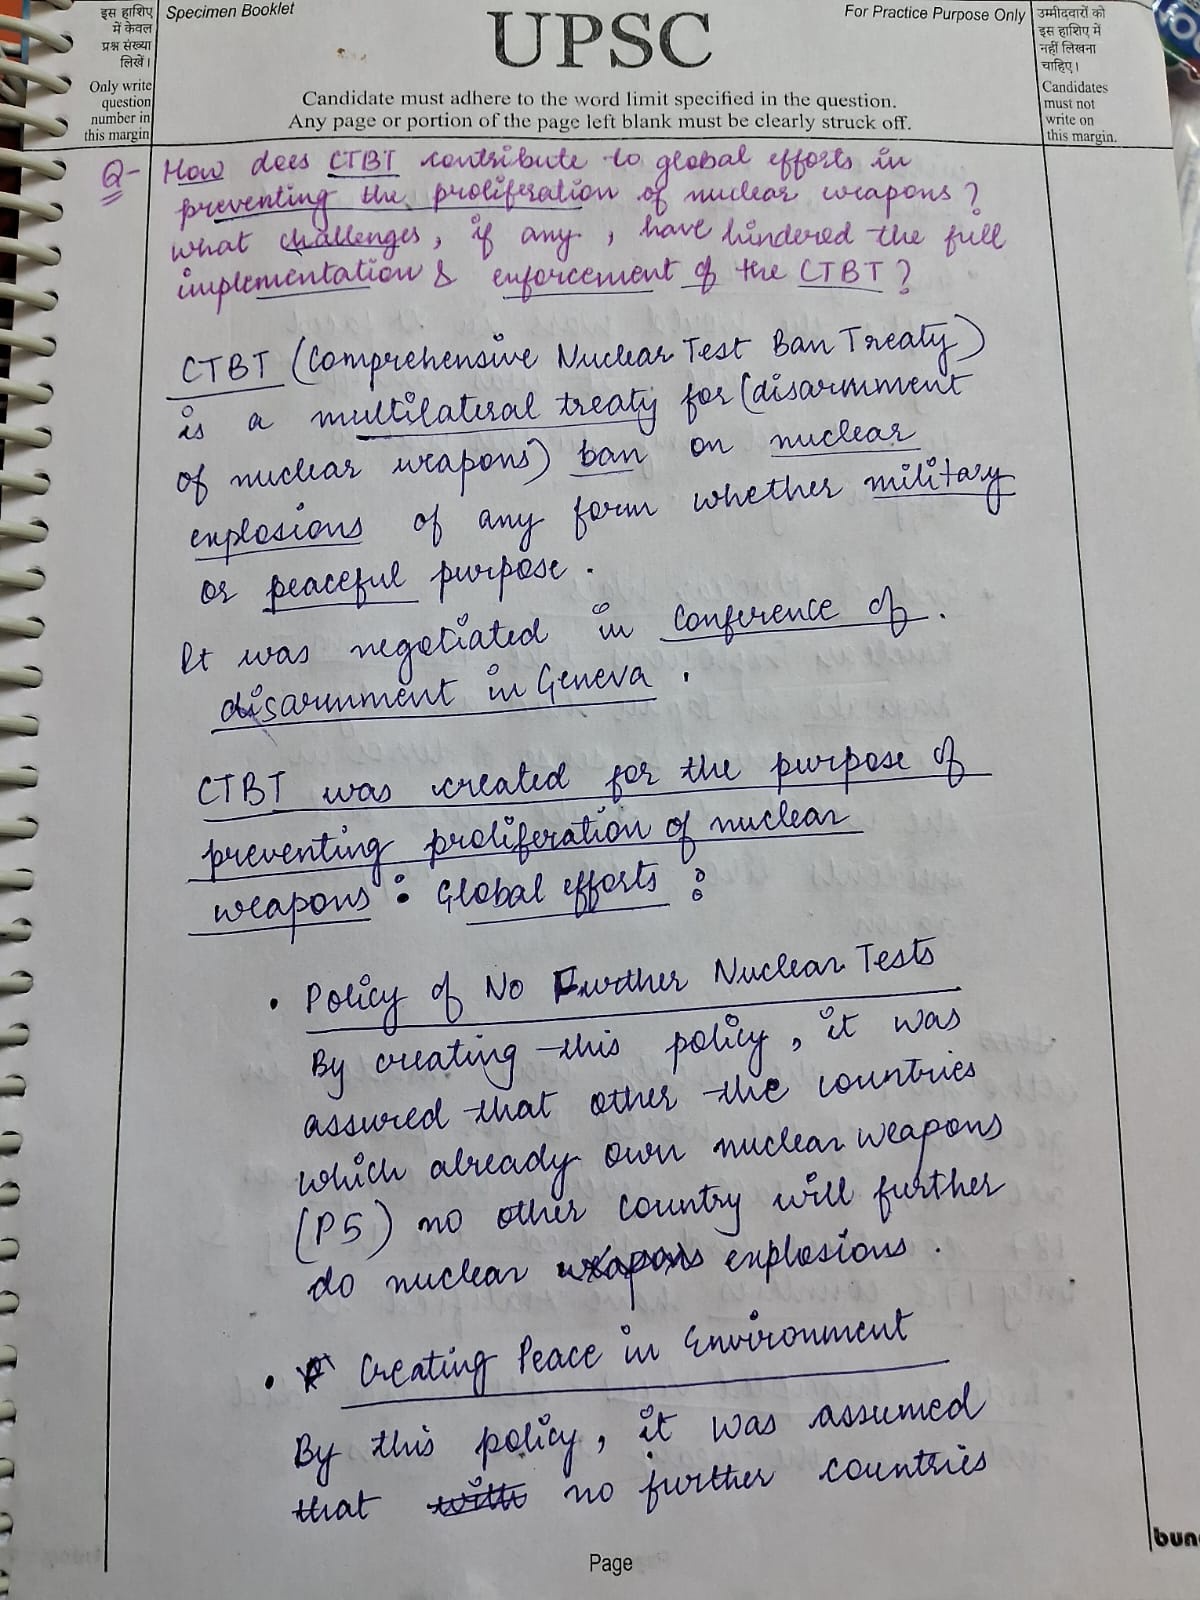 इस हाशिए
में केवल
प्रश्न संख्या
लिखें।
Only write
question
number in
this margin
Specimen Booklet
UPSC
For Practice Purpose Only
Candidate must adhere to the word limit specified in the question.
Any page or portion of the page left blank must be clearly struck off.
उम्मीदवारों को
इस हाशिए में
नहीं लिखना
चाहिए।
Candidates
must not
write on
this margin.
Q- How does CTBT contribute to global efforts in
preventing the proliferation of nuclear weapons?
what challenges, if any, have hindered the full
implementation & enforcement of the CTBT?
CTBT (Comprehensive Nuclear Test Ban Treaty)
is a multilateral treaty for (disarmment
of nuclear weapons) ban on nuclear
explosions of any form whether military
or peaceful purpose.
It was negotiated in Conference of.
disarmment in Geneva.
CTBT was created for the purpose of
preventing proliferation of nuclear
weapons : Global efforts :
• Policy of No Further Nuclear Tests
By creating this policy, it was
assured that other the countries
which already own nuclear weapons
(P5) no other country will further
do nuclear weapons explosions.
• Creating Peace in Environment
By this policy, it was assumed
that with no further countries
Page
bun